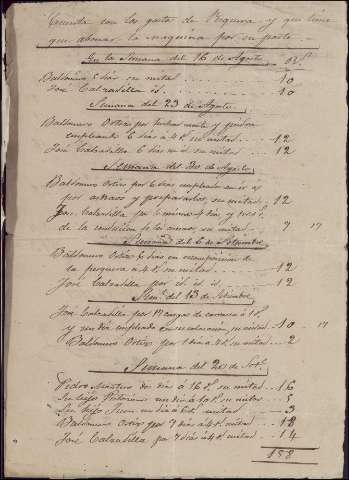 Cuenta con los gastos de Pesquera y que tiene
que abonar la maquina por su parte
En la Semana del 16 de Agosto
Baldomero 5 dias su mitad 10
José Calzadilla id. 10
Semana del 23 de Agosto
Baldomero Ortiz por
empleando 6 dias a 4 rs. su mitad 12
José Calzadilla 6 dias su mitad 12
Semana del 30 de Agosto
Baldomero Ortiz por 6 dias empleado en ir a
por y prepararlos, su mitad 12
José Calzadilla por 4 dias y
de la conduccion de su mitad 7 17
Semana del 6 de Setiembre
Baldomero Ortiz 6 dias en recomposicion de
la pesquera a 4 rs. su mitad 12
José Calzadilla por id. id. id. 12
Sem. del 13 de Setiembre
José Calzadilla por 12 cargas de a 10 rs.
y un dia empleado en su colocacion, su mitad 10 17
Baldomero Ortiz por 1 dia a 4 rs. su mitad 2
Semana del 20 de Set.
Pedro dos dias a 16 rs. su mitad 16
Su hijo un dia a 10 rs. su mitad 5
Su hijo Juan un dia a 6 rs. mitad 3
Baldomero Ortiz por 7 dias a 4 rs. su mitad
José Calzadilla por 7 dias a 4 rs. su mitad 14
158